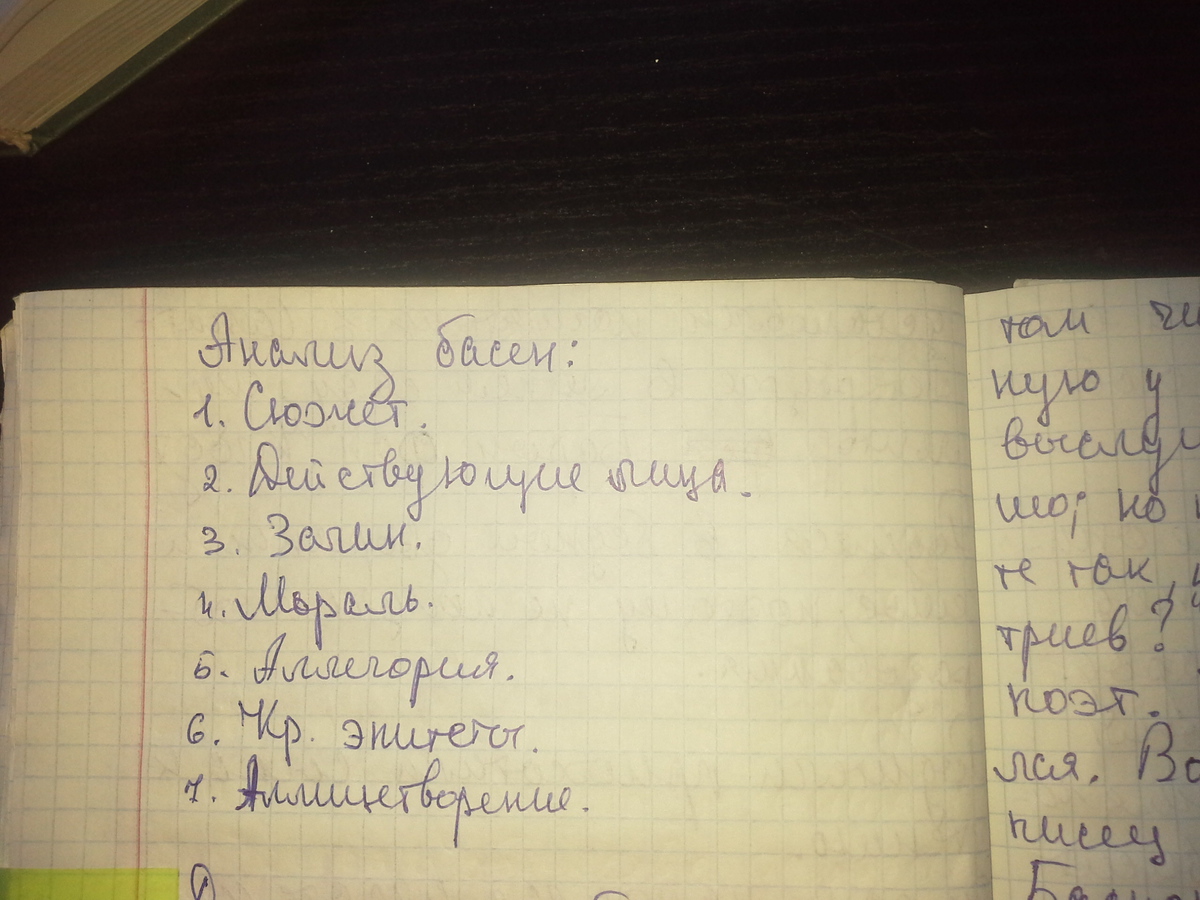 Анализ басен:
1. Сюжет.
2. Действующие лица.
3. Зачин.
4. Мораль.
5. Аллегория.
6. Кр. эпитеты.
7. Аллицетворение.
том чи
ную у
выслуш
шо; но
те так,
триев?
поэт.
лся. Во
писец
Басно